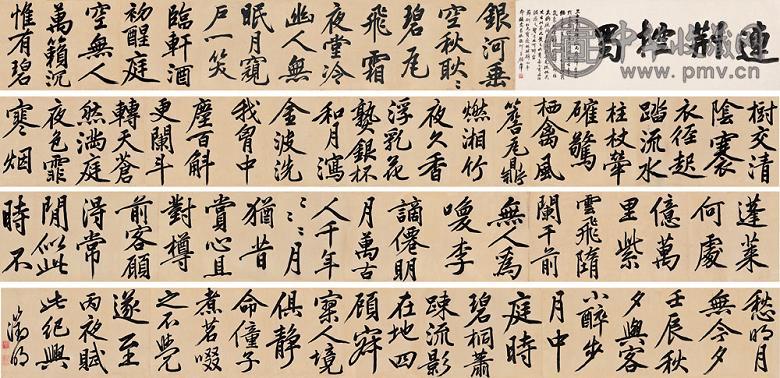 連荊控蜀
銀河垂
空秋耿〻
碧瓦
飛霜
夜堂冷
幽人無
眠月窺
戶一笑
臨軒酒
初醒庭
空無人
萬籟沉
惟有碧
樹交清
陰褰
衣徑起
踏流水
柱杖華
確驚
栖禽風
簷瓦鼎
燃湘竹
夜久香
浮乳花
熟銀杯
和月瀉
金波洗
我胷中
塵百斛
更闌斗
轉天蒼
然滿庭
夜色霏
寒烟
蓬萊
何處
億萬
里紫
雲飛墮
闌干前
無人為
喚李
謫僊明
月萬古
人千年
〻〻月
猶昔
賞心且
對樽
前客願
得常
閒似此
時不
愁明月
無今夕
壬辰秋
夕與客
小醉步
月中
庭時
碧桐蕭
踈流影
在地四
顧寂
寥人境
俱靜
命僮子
煮茗啜
之不覺
遂至
丙夜賦
此紀興
徵明
中华收藏网
www.pmv.cn